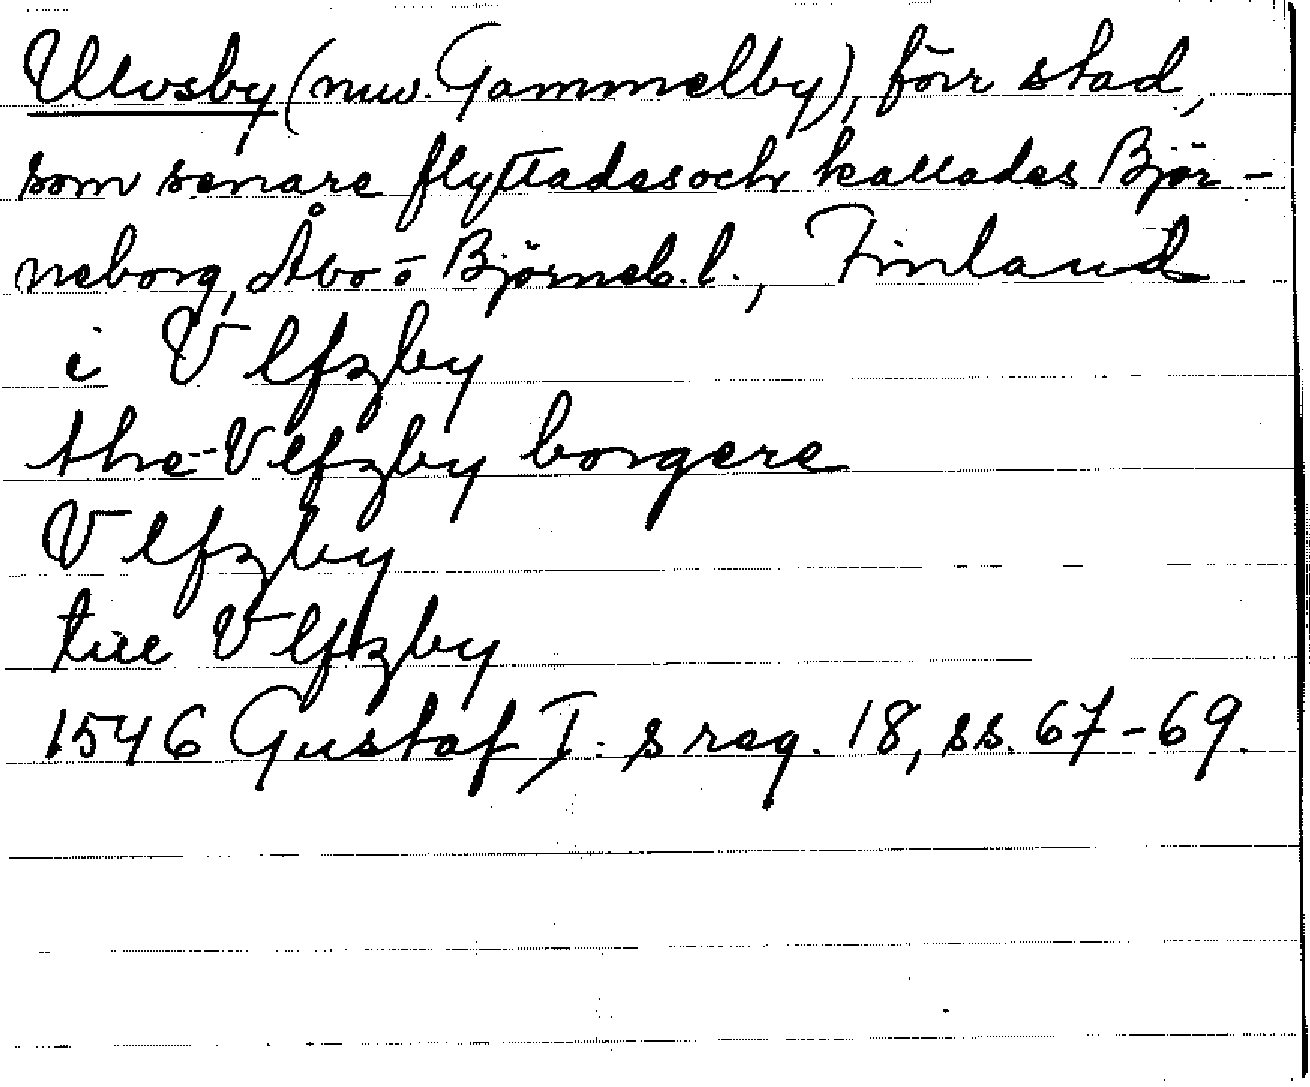 Ulvsby (nuv. Gammelby), förr stad,
som senare flyttades och kallades Björ-
neborg, Åbo-o Björneb. l., Finland
i Vlfzby
the Vlfzby borgere
Vlfzby
till Vlfzby
1546 Gustaf I:s reg. 18, ss. 67-69.